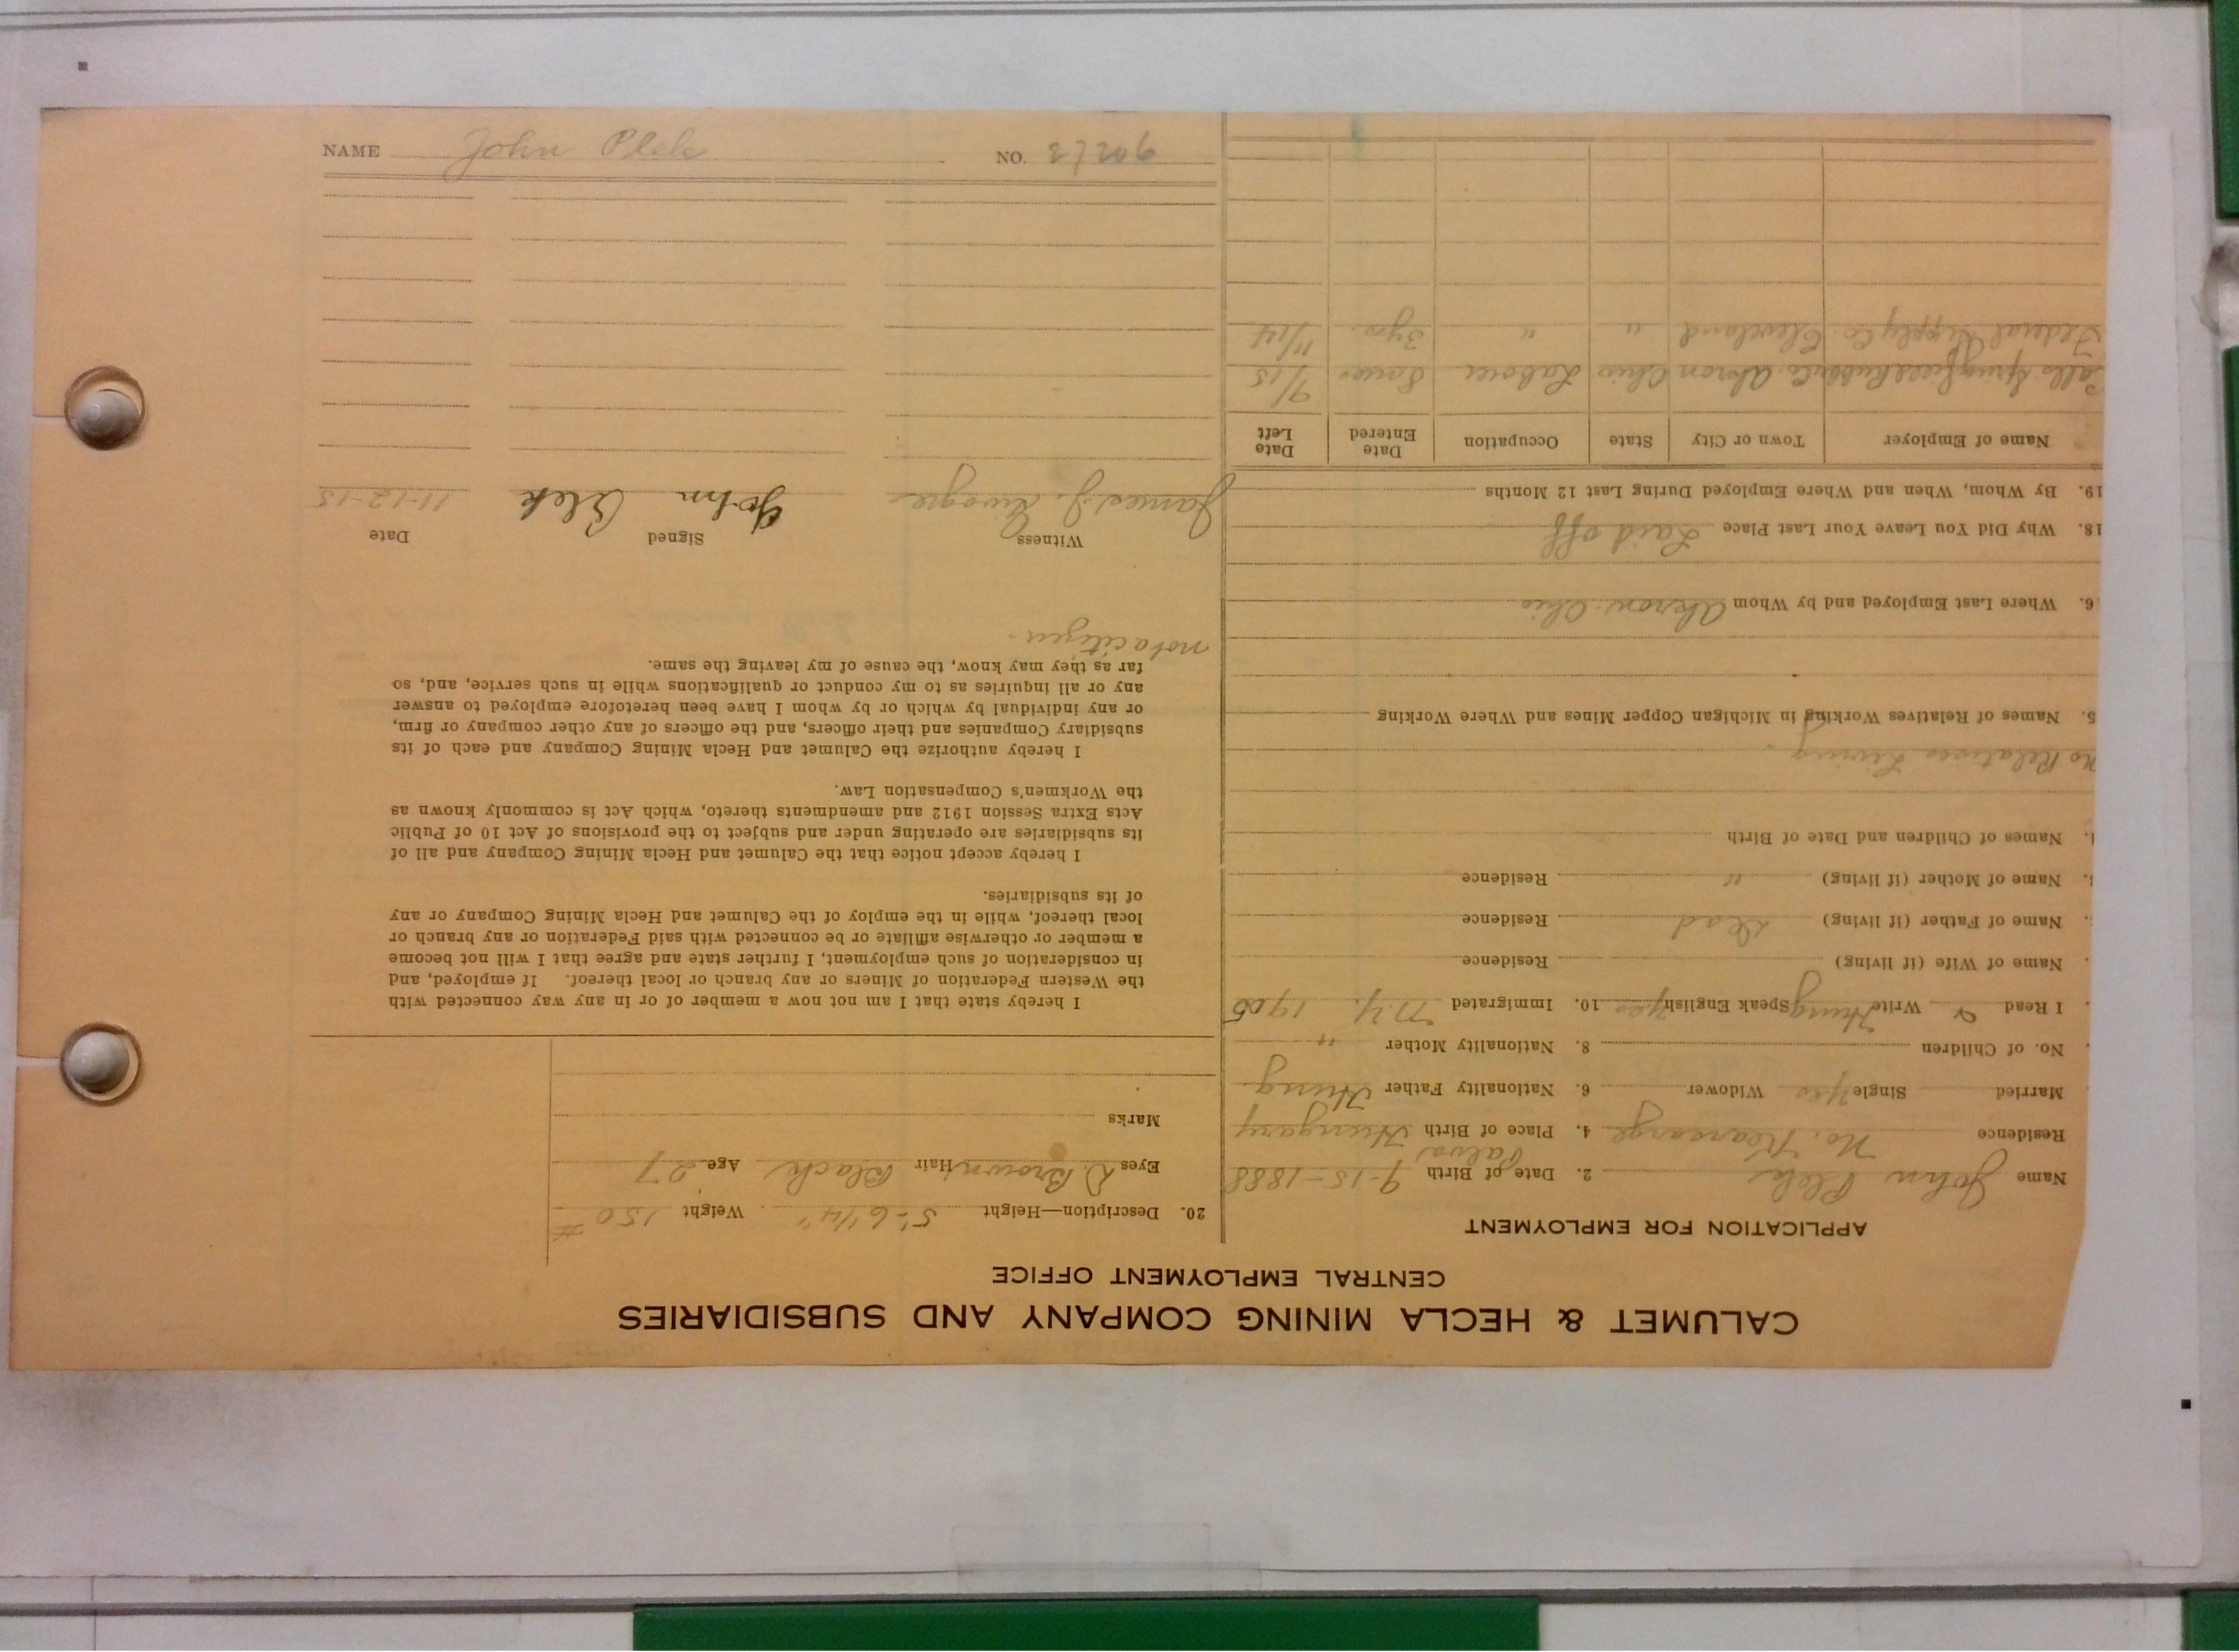 CALUMET & HECLA MINING COMPANY AND SUBSIDIARIES
CENTRAL EMPLOYMENT OFFICE
APPLICATION FOR EMPLOYMENT
Name John Plek 2. Date of Birth 9-15-1888
Residence No. Kearsarge 4. Place of Birth Hungary
Married Single Yes Widower 6. Nationality Father Hung
No. of Children 8. Nationality Mother "
I Read & Write Hung Speak English yes 10. Immigrated N.Y. 1905
Name of Wife (if living) Residence
Name of Father (if living) Dead Residence
Name of Mother (if living) " Residence
Names of Children and Date of Birth
No Relatives Living
5. Names of Relatives Working in Michigan Copper Mines and Where Working
6. Where Last Employed and by Whom Akron Ohio
18. Why Did You Leave Your Last Place Laid off
19. By Whom, When and Where Employed During Last 12 Months
Name of Employer Town or City State Occupation Date Entered Date Left
Springfield Rubber Co. Akron Ohio Laborer 9/15
Federal Supply Co. Cleveland " " 3 yrs. 11/14
20. Description—Height 5'-6 1/4" Weight 150 #
Eyes D. Brown Hair Black Age 27
Marks
I hereby state that I am not now a member of or in any way connected with
the Western Federation of Miners or any branch or local thereof. If employed, and
in consideration of such employment, I further state and agree that I will not become
a member or otherwise affiliate or be connected with said Federation or any branch or
local thereof, while in the employ of the Calumet and Hecla Mining Company or any
of its subsidiaries.
I hereby accept notice that the Calumet and Hecla Mining Company and all of
its subsidiaries are operating under and subject to the provisions of Act 10 of Public
Acts Extra Session 1912 and amendments thereto, which Act is commonly known as
the Workmen's Compensation Law.
I hereby authorize the Calumet and Hecla Mining Company and each of its
subsidiary Companies and their officers, and the officers of any other company or firm,
or any individual by which or by whom I have been heretofore employed to answer
any or all inquiries as to my conduct or qualifications while in such service, and, so
far as they may know, the cause of my leaving the same.
not a citizen.
Witness Signed Date
James J. John Plek 11-12-15
NAME John Plek NO. 27206